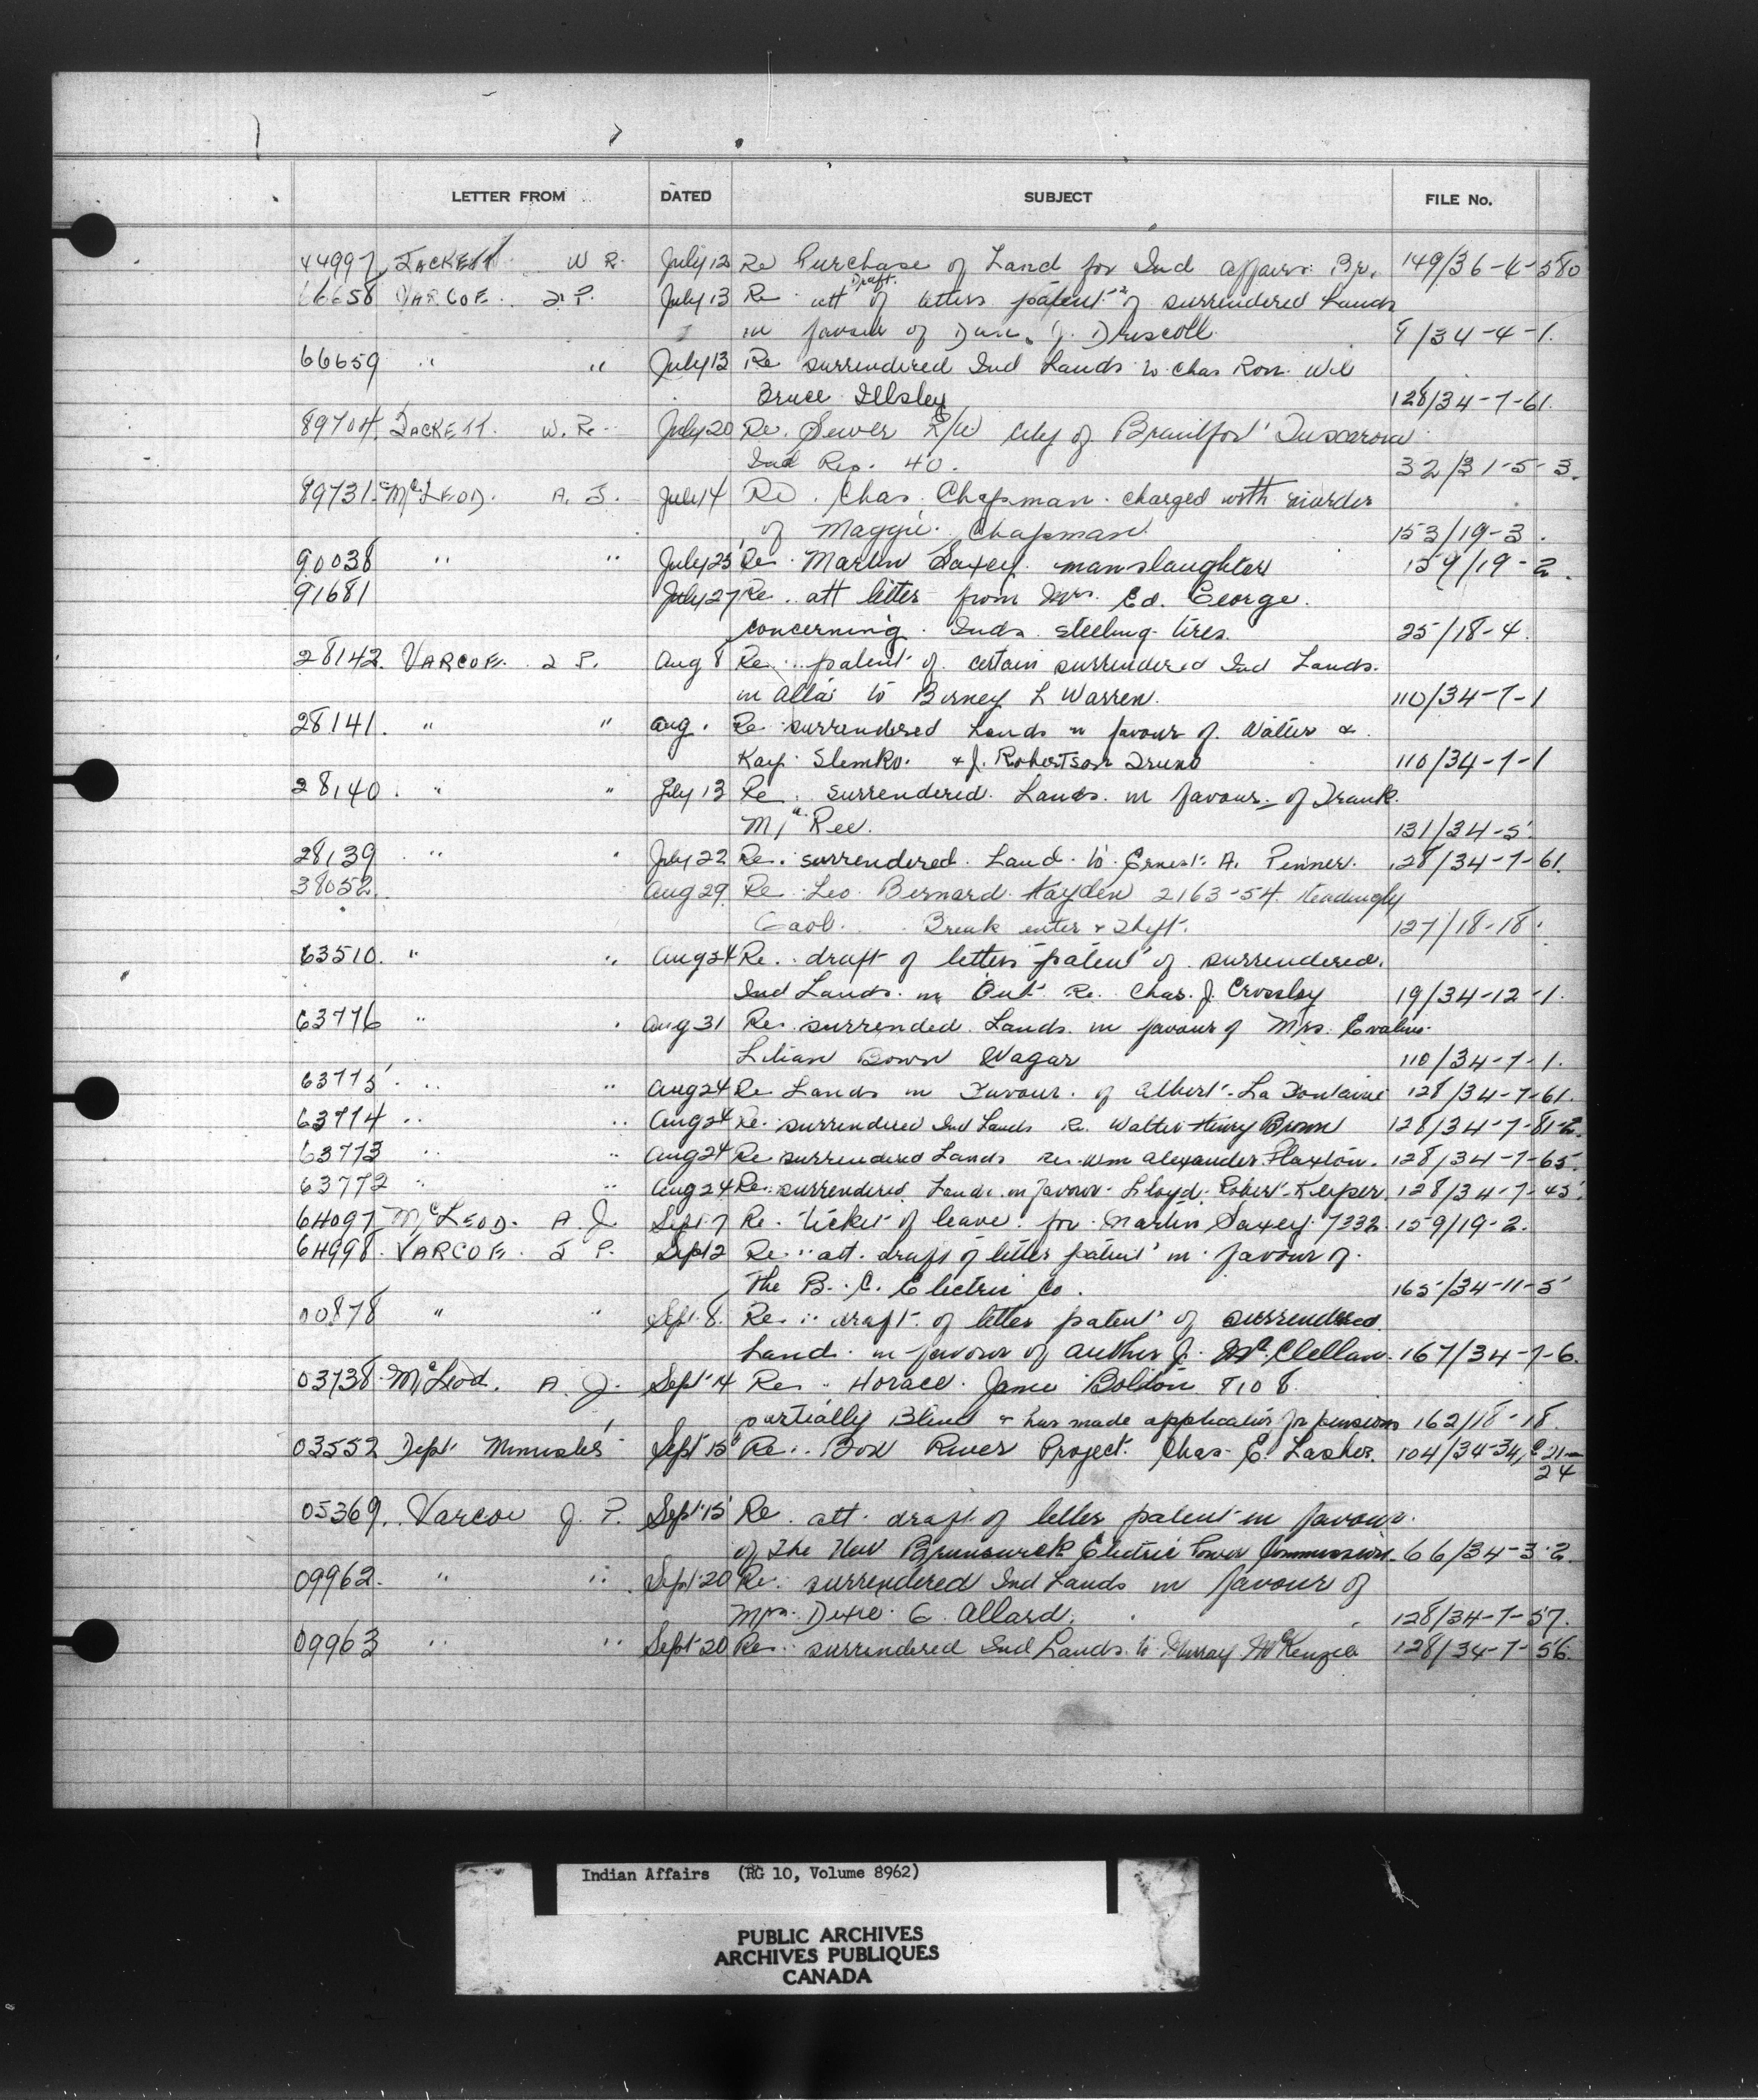 LETTER FROM DATED SUBJECT FILE No.
44997 JACKETT W R. July 12 Re Purchase of Land for Ind affairs Br. 149/36-4-580
Draft
66658 VARCOE. J. P. July 13 Re att of letters patent of surrendered Lands
in favour of Dan. J. Driscoll. 9/34-4-1.
66659 " " July 13 Re surrendered Ind Lands to Chas Ron. Wil
Bruce Illsley 128/34-7-61.
89704. JACKETT. W. R. July 20 Re. Sewer R/W City of Brantford Tuscarora
Ind Res. 40. 32/31-5-3.
89731. McLEOD. A. J. July 14 Re. Chas. Chapman. charged with murder
of Maggie. Chapman 153/19-3.
90038 " " July 25 Re. Martin Saxey. manslaughter 159/19-2.
91681 July 27 Re. att letter from Mrs. Ed. George.
concerning. Inds. steeling tires. 25/18-4.
28142. VARCOE. J P. Aug 8 Re. patent of certain surrendered Ind Lands.
in Alta to Birney L Warren. 110/34-7-1
28141. " " Aug. Re surrendered Lands in favour of. Walter &
Kay. Slemko. & J. Robertson 110/34-7-1
28140. " " July 13 Re. surrendered. Lands. in favour of Frank.
Ree. 131/34-5.
28139 " " July 22 Re. surrendered. Land. to. Ernest. A. Penner. 128/34-7-61.
38052. Aug 29 Re. Leo. Bernard Hayden 2163-54. Headingly
Gaol. Break enter & Theft. 127/18-18.
63510. " " Aug 24 Re. draft of letters patent of surrendered.
Ind Lands. in Ont. Re. Chas. J. Crossley 19/34-12-1.
63776 " " Aug 31 Re. surrended. Lands. in favour of Mrs. Evaline.
Lilian Down Wagar 110/34-7-1.
63775. " " Aug 24 Re Lands in Favour. of Albert. La Fontaine 128/34-7-61.
63774 " " Aug 24 Re. surrendered Ind Lands Re. Walter Henry Brown 128/34-7-81-2.
63773 " " Aug 24 Re surrendered Lands re. Wm Alexander Flaxton. 128/34-7-65.
63772 " " Aug 24 Re. surrendered. Lands. in favour. Lloyd. Robert. Keeper. 128/34-7-45.
64097 McLEOD. A. J. Sept 7 Re. ticket of leave. for Martin Saxey 7332. 159/19-2.
64998. VARCOE. J P. Sept 2 Re. att. draft of letter patent in favour of.
The B. C. Electric Co. 165/34-11-5
00878 " " Sept. 8. Re. draft of letter patent of surrendered.
Land. in favour of Auther J. McClellan. 167/34-7-6.
03738. McLeod. A. J. Sept 14 Re. Horace. James Bolton 8108.
partially Blind & has made application for pension 162/18-18.
03552 Dept Minister Sept 15 Re. Bow River Project. Chas. E. Lasher. 104/34-34, C21-24
05369. Varcoe J. P. Sept 15 Re. att. draft of letter patent in favour.
of The New Brunswick Electric Power Commission. 66/34-3-2.
09962. " " Sept 20 Re. surrendered Ind Lands in favour of
Mrs. Dexie G. Allard. 128/34-7-57.
09963 " " Sept 20 Re. surrendered Ind Lands. to Murray McKenzie 128/34-7-56.
Indian Affairs (RG 10, Volume 8962)
PUBLIC ARCHIVES
ARCHIVES PUBLIQUES
CANADA